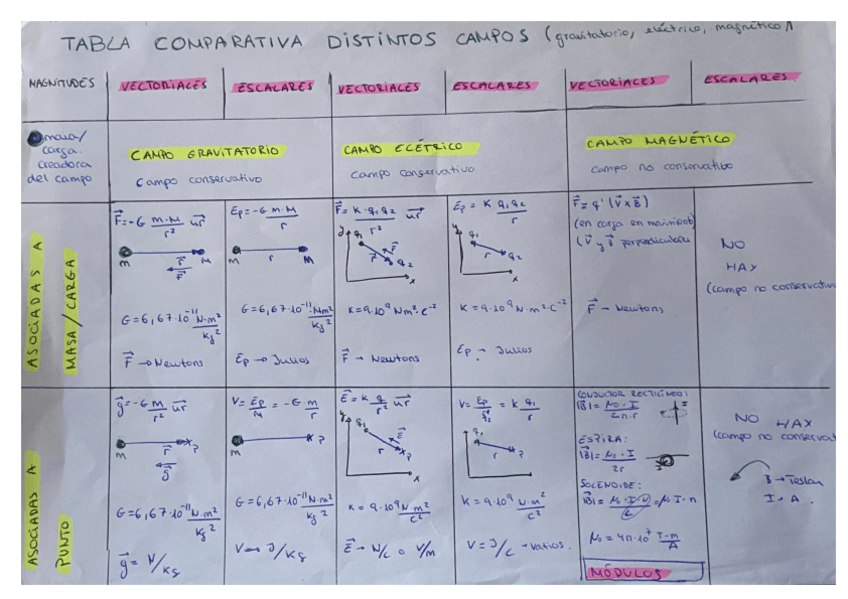 TABLA COMPARATIVA DISTINTOS CAMPOS (gravitatorio, eléctrico, magnético)
MAGNITUDES
VECTORIALES
ESCALARES
VECTORIALES
ESCALARES
VECTORIALES
ESCALARES
masa/
carga
creadora
del campo
CAMPO GRAVITATORIO
Campo conservativo
CAMPO ELÉTRICO
Campo conservativo
CAMPO MAGNÉTICO
Campo no conservativo
ASOCIADAS A
MASA/CARGA
F⃗=-G m·M/r² u⃗r
m
r⃗
F⃗
M
G=6,67·10⁻¹¹ N·m²/Kg²
F⃗ → Newtons
Ep=-G m·M/r
m
r
M
G=6,67·10⁻¹¹ Nm²/Kg²
Ep → Julios
F⃗=K·q₁q₂/r² u⃗r
y
q₁
F⃗
r⃗
q₂
x
K=9·10⁹ Nm²·C⁻²
F⃗ → Newtons
Ep = K q₁q₂/r
y
q₁
r
q₂
x
K=9·10⁹ N·m²·C⁻²
Ep → Julios
F⃗=q·(v⃗xB⃗)
(en carga en movimient
(v⃗ y B⃗ perpendiculares
F⃗ → Newtons
NO
HAY
(campo no conservativo
ASOCIADAS A
PUNTO
g⃗=-G M/r² u⃗r
m
r⃗
g⃗
P
G=6,67·10⁻¹¹ N·m²/Kg²
g⃗ = N/Kg
V=Ep/M = -G·m/r
m
P
G=6,67·10⁻¹¹ N·m²/Kg²
V → J/Kg
E⃗=K q/r² u⃗r
y
q₁
E⃗
r
P
x
K=9·10⁹ N·m²/C²
E⃗ → N/C o V/m
V=Ep/q₂ = K q₁/r
q₁
r
P
K=9·10⁹ N·m²/C²
V=J/C → Voltios.
CONDUCTOR RECTILÍNEO:
|B⃗|=μ₀·I/2π·r
I
ESPIRA:
|B⃗|=μ₀·I/2r
SOLENOIDE:
|B⃗|=μ₀·I·N/L=μ₀I·n
μ₀=4π·10⁷ T·m/A
MÓDULOS
NO HAY
(campo no conservat
B→Teslas
I→A.